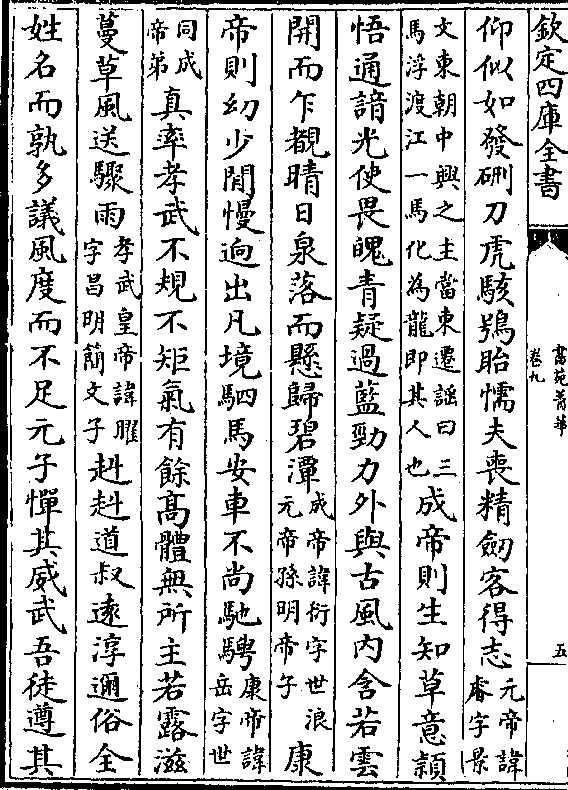 欽定四庫全書
書苑菁華
卷九
五
仰似如發硎刀虎駭鶚眙懦夫喪精劒客得志元帝諱睿字景
文東朝中興之主當東遷謡曰三馬浮渡江一馬化為龍即其人也成帝則生知草意頴
悟通諳光使畏魄青疑過藍勁力外與古風内含若雲
開而乍覩晴日泉落而懸歸碧潭成帝諱衍字世浪元帝孫明帝子康
帝則幼少閒慢逈出凡境駟馬安車不尚馳騁康帝諱岳字世
同成帝弟真率孝武不規不矩氣有餘高體無所主若露滋
蔓草風送驟雨孝武皇帝諱曜字昌明簡文子赳赳道叔逺淳邇俗全
姓名而孰多議風度而不足元子憚其威武吾徒遵其